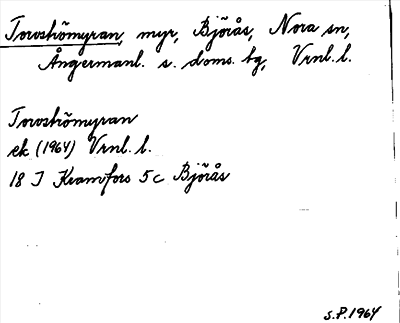 Torströmyran, myr, Björås, Nora sn,
Ångermanl. s. doms. tg, Vrnl. l.
Torströmyran
ek (1964) Vrnl. l.
18 I Kramfors 5 c Björås
S.P. 1964